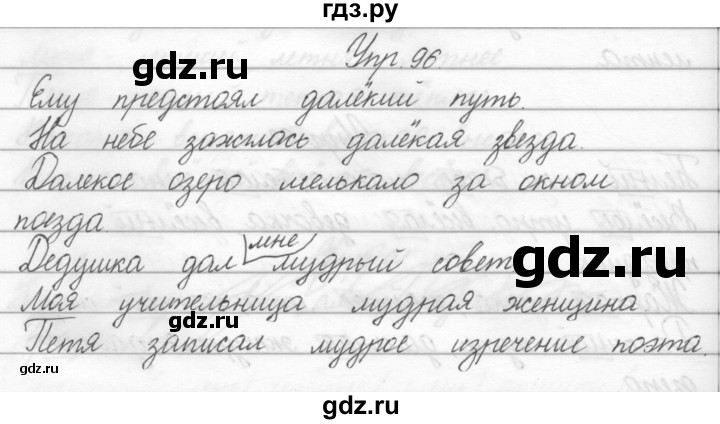 гдз.ру
gdz.ru
Упр. 96.
Ему предстоял далёкий путь.
На небе зажглась далёкая звезда.
Далекое озеро мелькало за окном
поезда
мне
Дедушка дал мудрый совет
gdz.ru
Моя учительница мудрая женщина
gdz.ru
Петя записал мудрое изречение поэта.
gdz.ru
gdz.ru